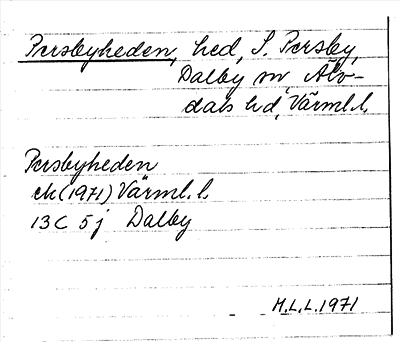 Persbyheden, hed, S. Persby,
Dalby sn, Älv-
dals hd, Värml.l.
Persbyheden
ek (1971) Värml.l.
13C 5j Dalby
M.L.L. 1971